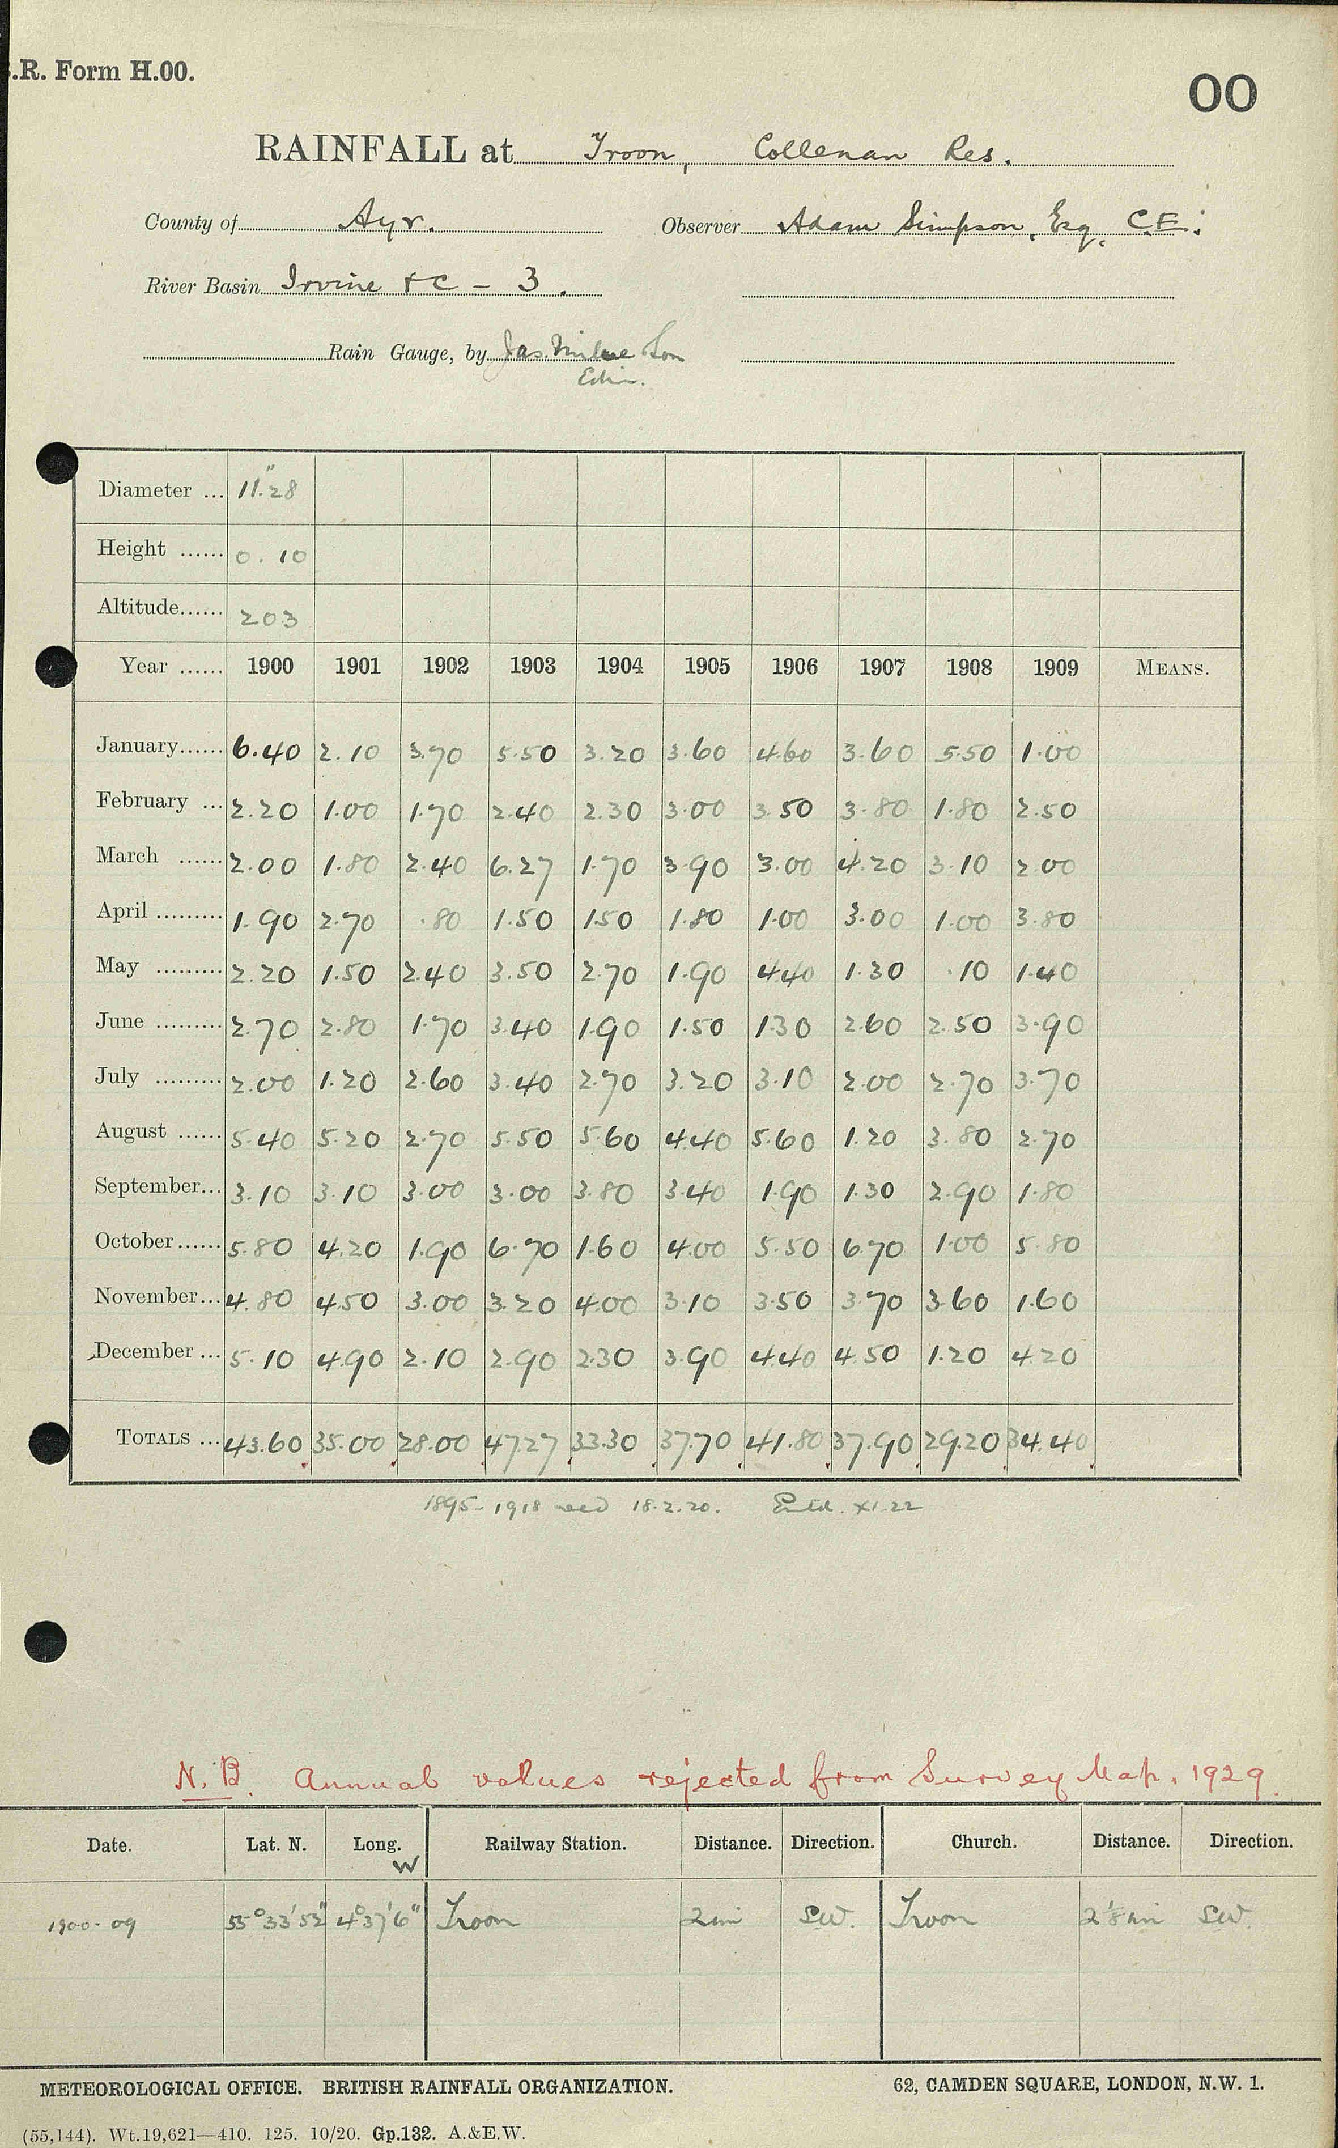 .R. Form H.00.
00
RAINFALL at Troon, Collenan Res.
County of Ayr. Observer Adam Simpson, Esq, C.E.
River Basin Irvine &c - 3.
Rain Gauge, by Jas. Milne Son
Edin.
Diameter ... 11".28
Height ...... 0.10
Altitude...... 203
Year ...... 1900 1901 1902 1903 1904 1905 1906 1907 1908 1909 MEANS.
January...... 6.40 2.10 3.70 5.50 3.20 3.60 4.60 3.60 5.50 1.00
February ... 2.20 1.00 1.70 2.40 2.30 3.00 3.50 3.80 1.80 2.50
March ...... 2.00 1.80 2.40 6.27 1.70 3.90 3.00 4.20 3.10 2.00
April ......... 1.90 2.70 .80 1.50 1.50 1.80 1.00 3.00 1.00 3.80
May ......... 2.20 1.50 2.40 3.50 2.70 1.90 4.40 1.30 .10 1.40
June ......... 2.70 2.80 1.70 3.40 1.90 1.50 1.30 2.60 2.50 3.90
July ......... 2.00 1.20 2.60 3.40 2.70 3.20 3.10 2.00 2.70 3.70
August ...... 5.40 5.20 2.70 5.50 5.60 4.40 5.60 1.20 3.80 2.70
September... 3.10 3.10 3.00 3.00 3.80 3.40 1.90 1.30 2.90 1.80
October...... 5.80 4.20 1.90 6.70 1.60 4.00 5.50 6.70 1.00 5.80
November... 4.80 4.50 3.00 3.20 4.00 3.10 3.50 3.70 3.60 1.60
December ... 5.10 4.90 2.10 2.90 2.30 3.90 4.40 4.50 1.20 4.20
TOTALS ... 43.60 35.00 28.00 47.27 33.30 37.70 41.80 37.90 29.20 34.40
1895-1918 recd 18.2.20. Entd. XI.22
N.B. Annual values rejected from Survey Map, 1929.
Date. Lat. N. Long. W Railway Station. Distance. Direction. Church. Distance. Direction.
1900-09 55°33'52" 4°37'6" Troon 2 mi SW. Troon 2⅛ mi SW.
METEOROLOGICAL OFFICE. BRITISH RAINFALL ORGANIZATION. 62, CAMDEN SQUARE, LONDON, N.W. 1.
(55,144). Wt.19,621—410. 125. 10/20. Gp.132. A.&E.W.